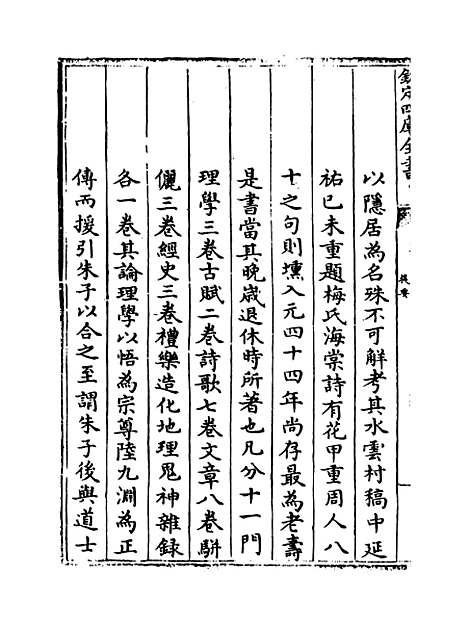 欽定四庫全書
提要
以隱居為名殊不可解考其水雲村稿中延
祐已未重題梅氏海棠詩有花甲重周人八
十之句則壎入元四十四年尚存最為老壽
是書當其晩歲退休時所著也凡分十一門
理學三卷古賦二卷詩歌七卷文章八卷駢
儷三卷經史三卷禮樂造化地理鬼神雜録
各一卷其論理學以悟為宗尊陸九淵為正
傳而援引朱子以合之至謂朱子後與道士